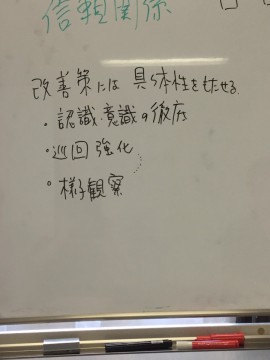 信頼関係
改善策には具体性をもたせる
・認識・意識の徹底
・巡回強化
・様子観察